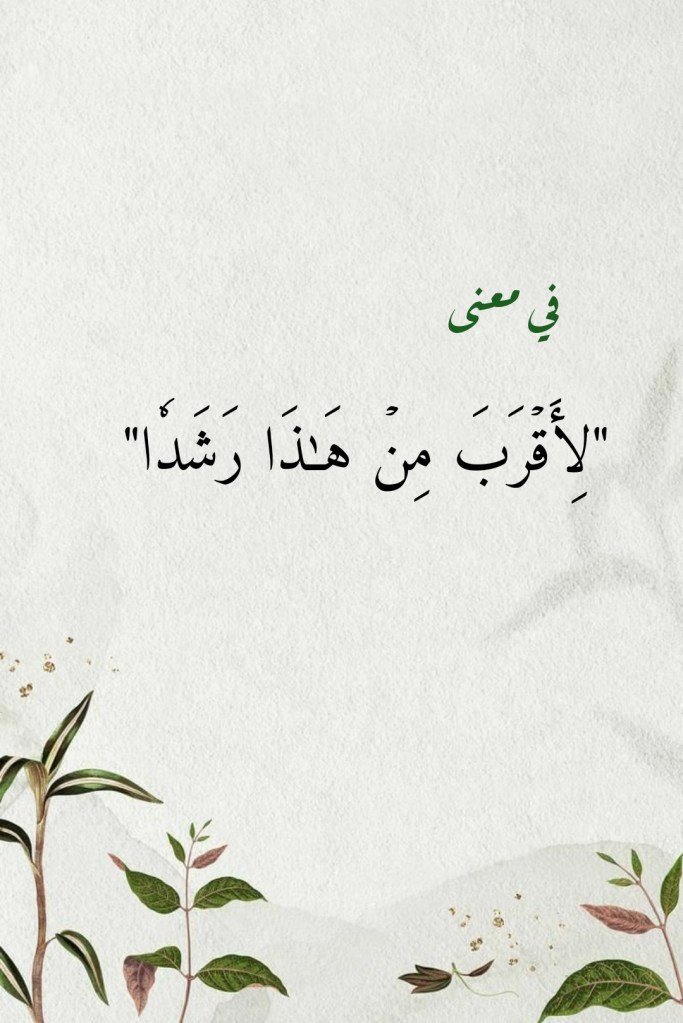 في معنى
"لِأَقۡرَبَ مِنۡ هَـٰذَا رَشَدٗا"